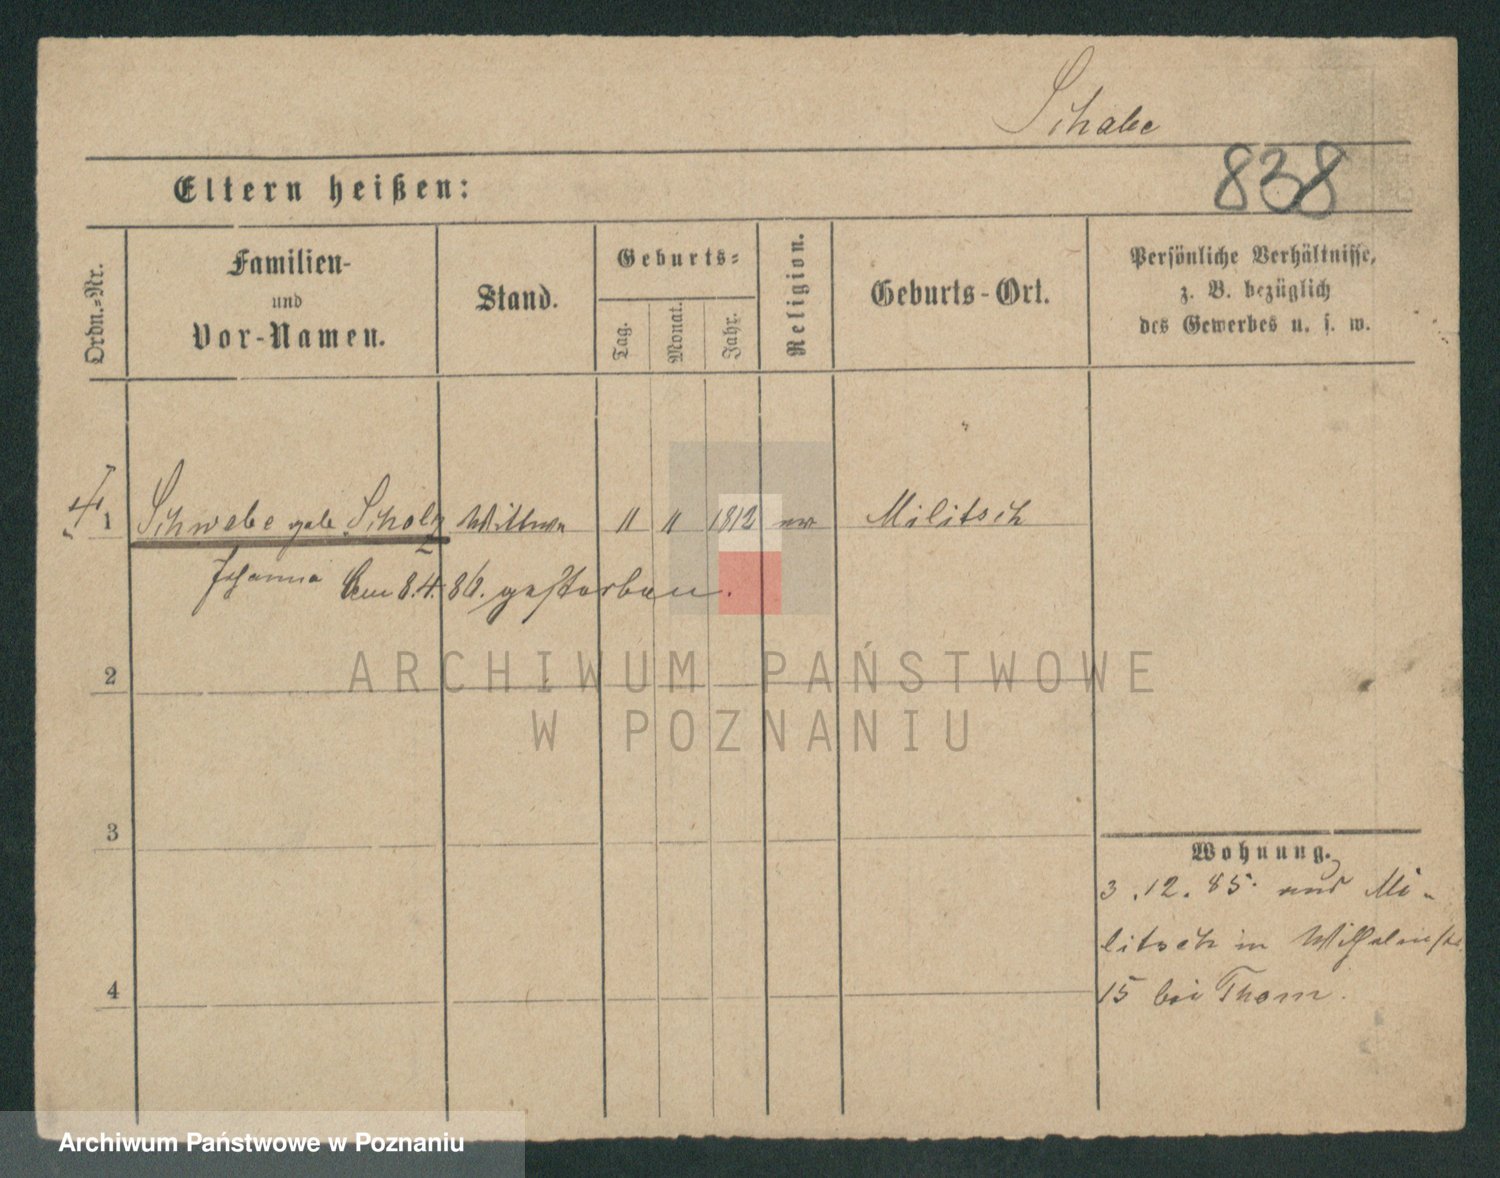 Schabe
838
Eltern heißen:
Ordn.-Nr.
Familien-
und
Vor-Namen.
Stand.
Geburts-
Tag.
Monat.
Jahr.
Religion.
Geburts-Ort.
Persönliche Verhältnisse,
z. B. bezüglich
des Gewerbes u. s. w.
1 Schwabe geb. Scholz Wittwe " " 1812 ev Militsch
Johanna Am 8.4.86. gestorben.
2
3
4
Wohnung.
3.12.85. aus Mi-
litsch in Wilhelmstr.
15 bei Thom.
ARCHIWUM PAŃSTWOWE
W POZNANIU
Archiwum Państwowe w Poznaniu